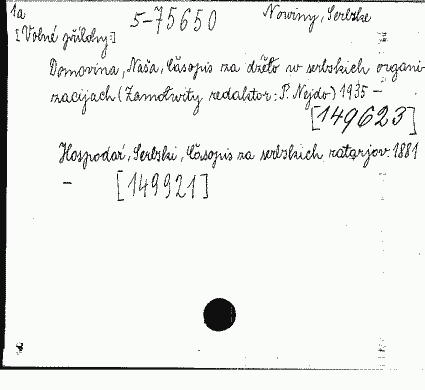 1a
5-75650
Nowiny, Serbske
[Volné přílohy]
Domovina, Naša, Časopis za dźěło w serbskich organi-
zacijach (Zamołwity redaktor: P. Nejdo) 1935 -
[149623]
Hospodař, Serbski, Časopis za serbskich ratarjow. 1881
- [149921]